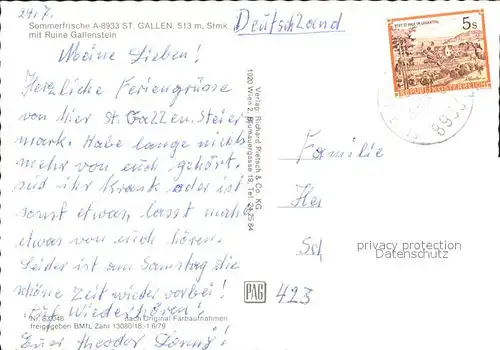 24.7.
Sommerfrische A-8933 ST. GALLEN, 513 m, Stmk.
mit Ruine Gallenstein
Deutschland
Meine Lieben!
Herzliche Feriengrüsse
von hier St. Gallen. Steier
mark. Habe lange nichts
mehr von euch gehört.
sind ihr Krank oder ist
sonst etwas, lasst mich
etwas von euch hören.
Leider ist am Samstag die
schöne Zeit wieder vorbei!
Auf Wiederhören!
Euer Theodor
Nr. 833046
nach Original Farbaufnahmen
freigegeben BMfL Zahl 13080/18-1.6/79
Verlag: Richard Pietsch & Co. KG
1020 Wien 2, Blumauergasse 19, Tel. 24 25 84
PAG
423
5s
REPUBLIK ÖSTERREICH
8933
Familie
Her
Sch
privacy protection
Datenschutz